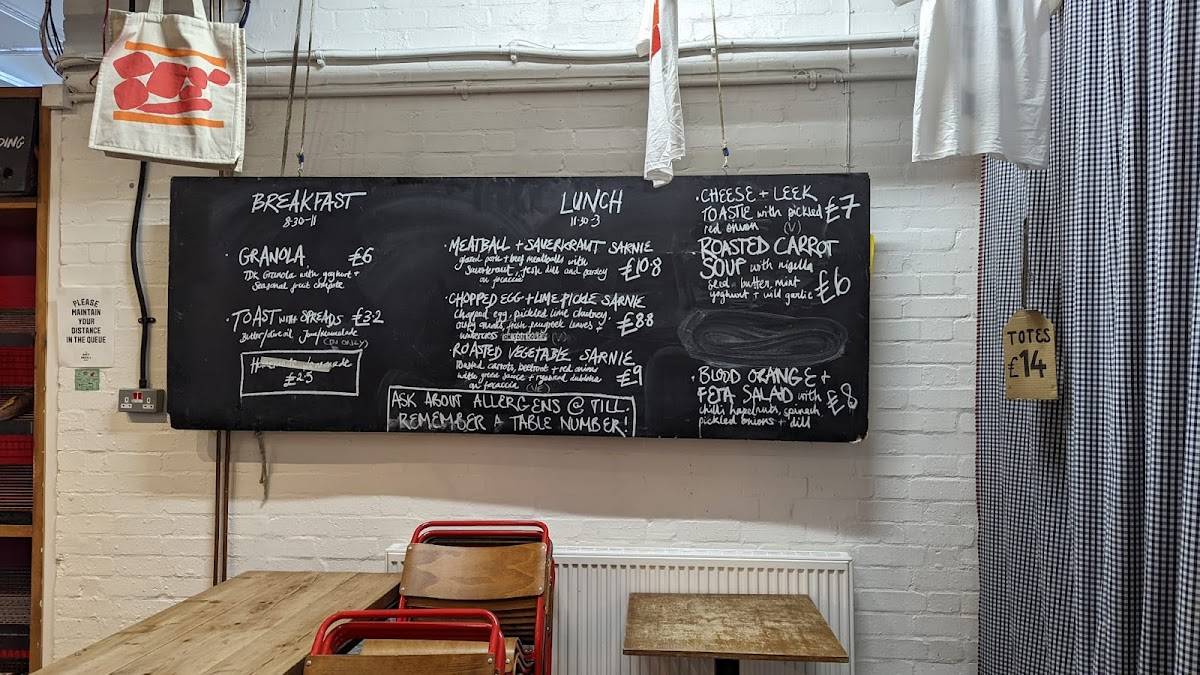 DING
PLEASE
MAINTAIN
YOUR
DISTANCE
IN THE QUEUE
BREAKFAST
8:30-11
· GRANOLA £6
Granola with yoghurt +
Seasonal fruit compote
· TOAST WITH SPREADS £3.2
Butter/olive oil Jam/Marmalade
(DN ONLY)
£2.5
LUNCH
11:30-3
· MEATBALL + SAUERKRAUT SARNIE
pork + beef meatballs with
sauerkraut, fresh dill and parsley
on focaccia £10.8
· CHOPPED EGG + LIME PICKLE SARNIE
Chopped egg, pickled lime chutney,
fresh fenugreek leaves +
watercress £8.8
· ROASTED VEGETABLE SARNIE
roasted carrots, beetroot + red onions
with green sauce +
on focaccia (VE) £9
ASK ABOUT ALLERGENS @ TILL.
REMEMBER A TABLE NUMBER!
· CHEESE + LEEK
TOASTIE with pickled
red onion (V) £7
ROASTED CARROT
SOUP with nigella
seed butter, mint
yoghurt + wild garlic £6
· BLOOD ORANGE +
FETA SALAD with
chilli hazelnuts, spinach,
pickled onions + dill £8
TOTES
£14